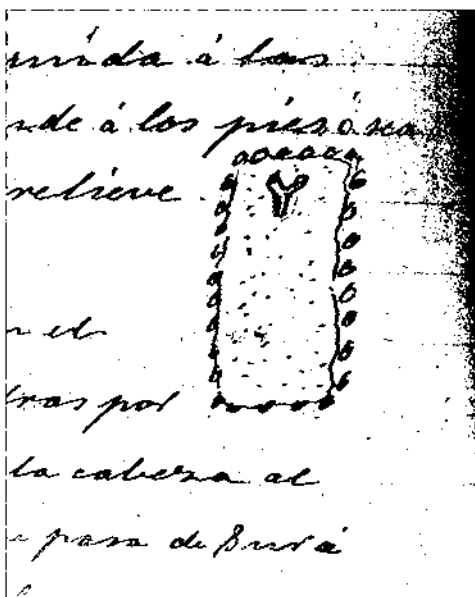 unida á las
nde á los pies ó sea
relieve
n el
tras por
la cabeza al
pasa de Burá